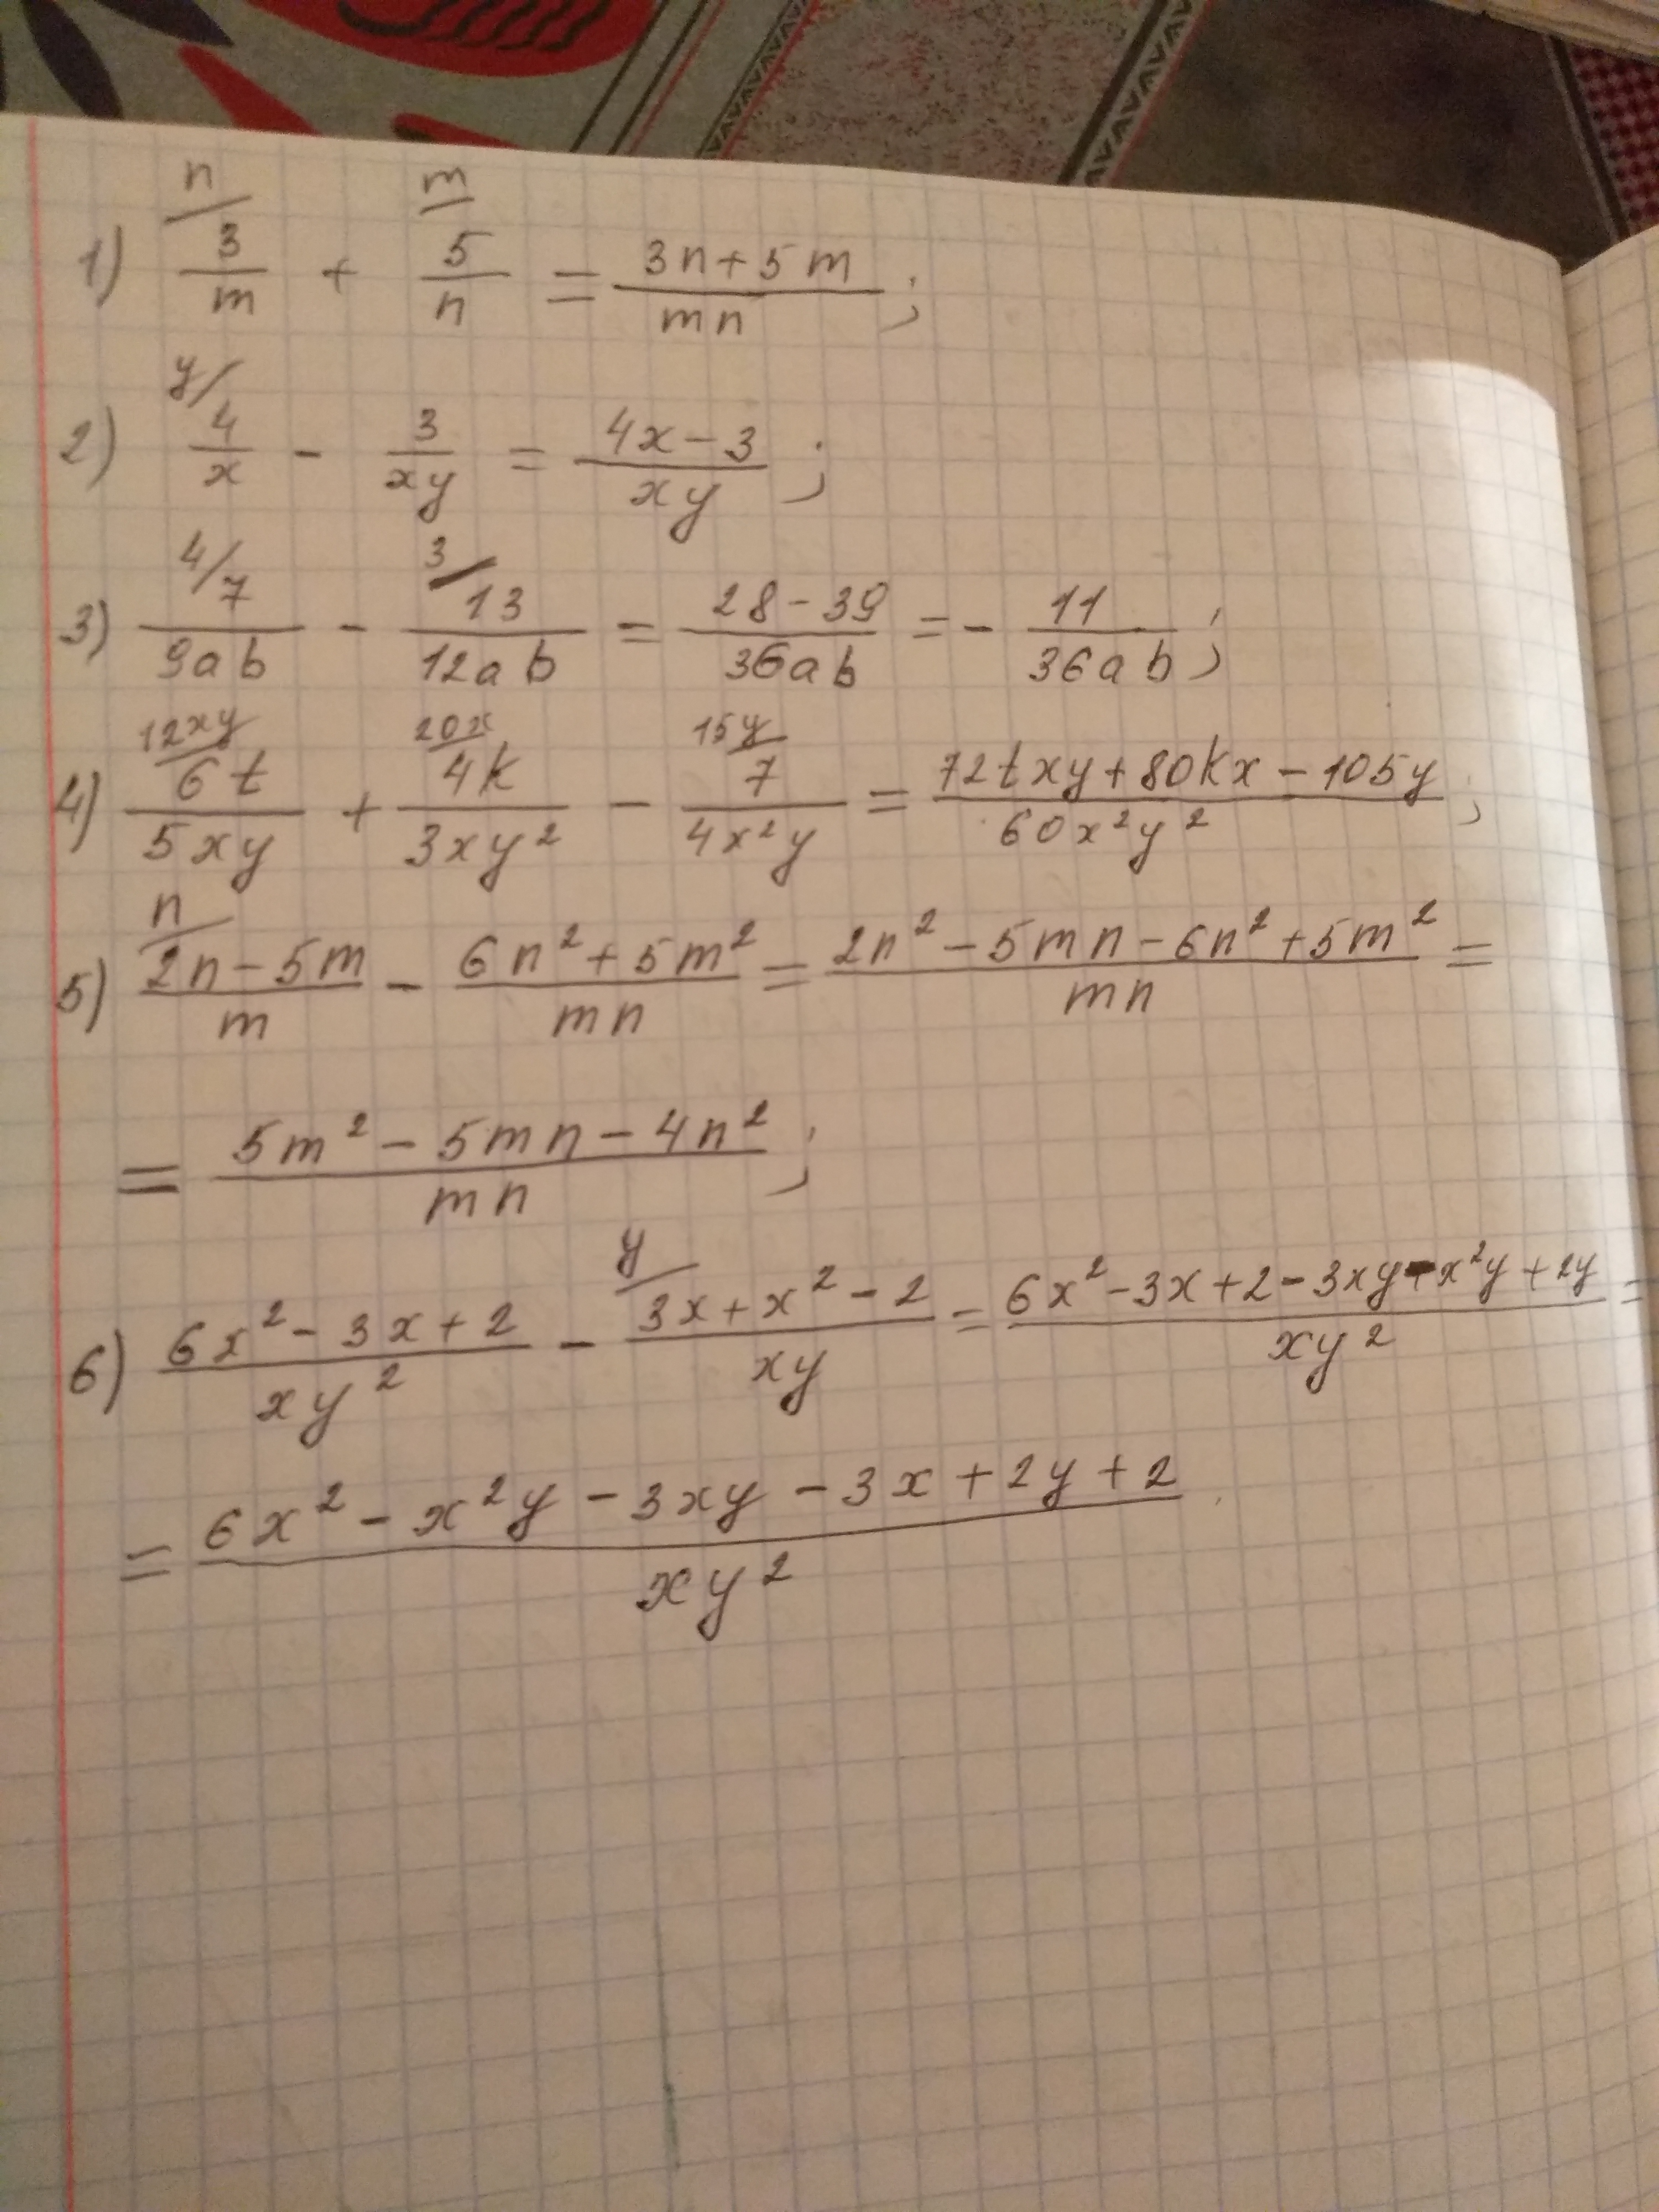 1) n/ 3/m + m/ 5/n = (3n+5m)/(mn);
2) y/ 4/x - 3/(xy) = (4x-3)/(xy);
3) 4/ 7/(9ab) - 3/ 13/(12ab) = (28-39)/(36ab) = - 11/(36ab);
4) 12xy/ 6t/(5xy) + 20x/ 4k/(3xy²) - 15y/ 7/(4x²y) = (72txy+80kx-105y)/(60x²y²);
5) n/ (2n-5m)/m - (6n²+5m²)/(mn) = (2n²-5mn-6n²+5m²)/(mn) =
= (5m²-5mn-4n²)/(mn);
6) (6x²-3x+2)/(xy²) - y/ (3x+x²-2)/(xy) = (6x²-3x+2-3xy-x²y+2y)/(xy²) =
= (6x²-x²y-3xy-3x+2y+2)/(xy²).